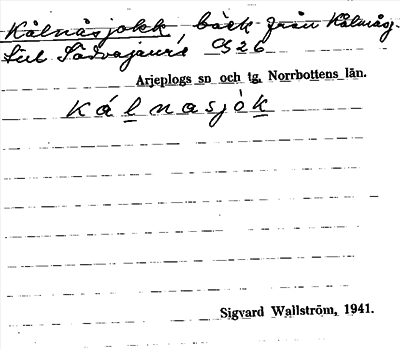 Kålnåsjokk, bäck från Kålnåsj.
till Sädvajaure 9326
Arjeplogs sn och tg. Norrbottens län.
Kálnasjòk
Sigvard Wallström, 1941.